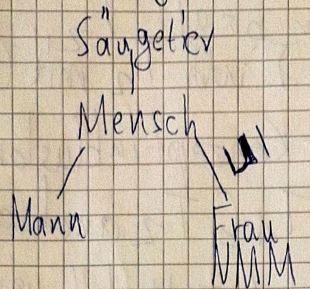 Säugetier
Mensch
Mann Frau
NMM